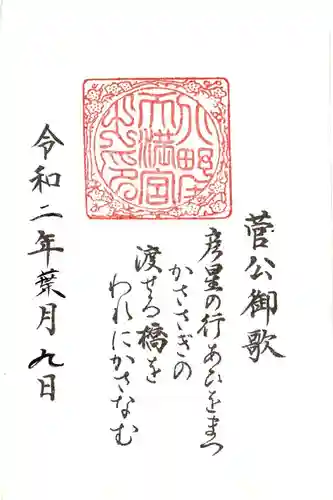 菅公御歌
彦星の行あひをまつ
かささぎの
渡せる橋を
われにかさなむ
令和二年葉月九日